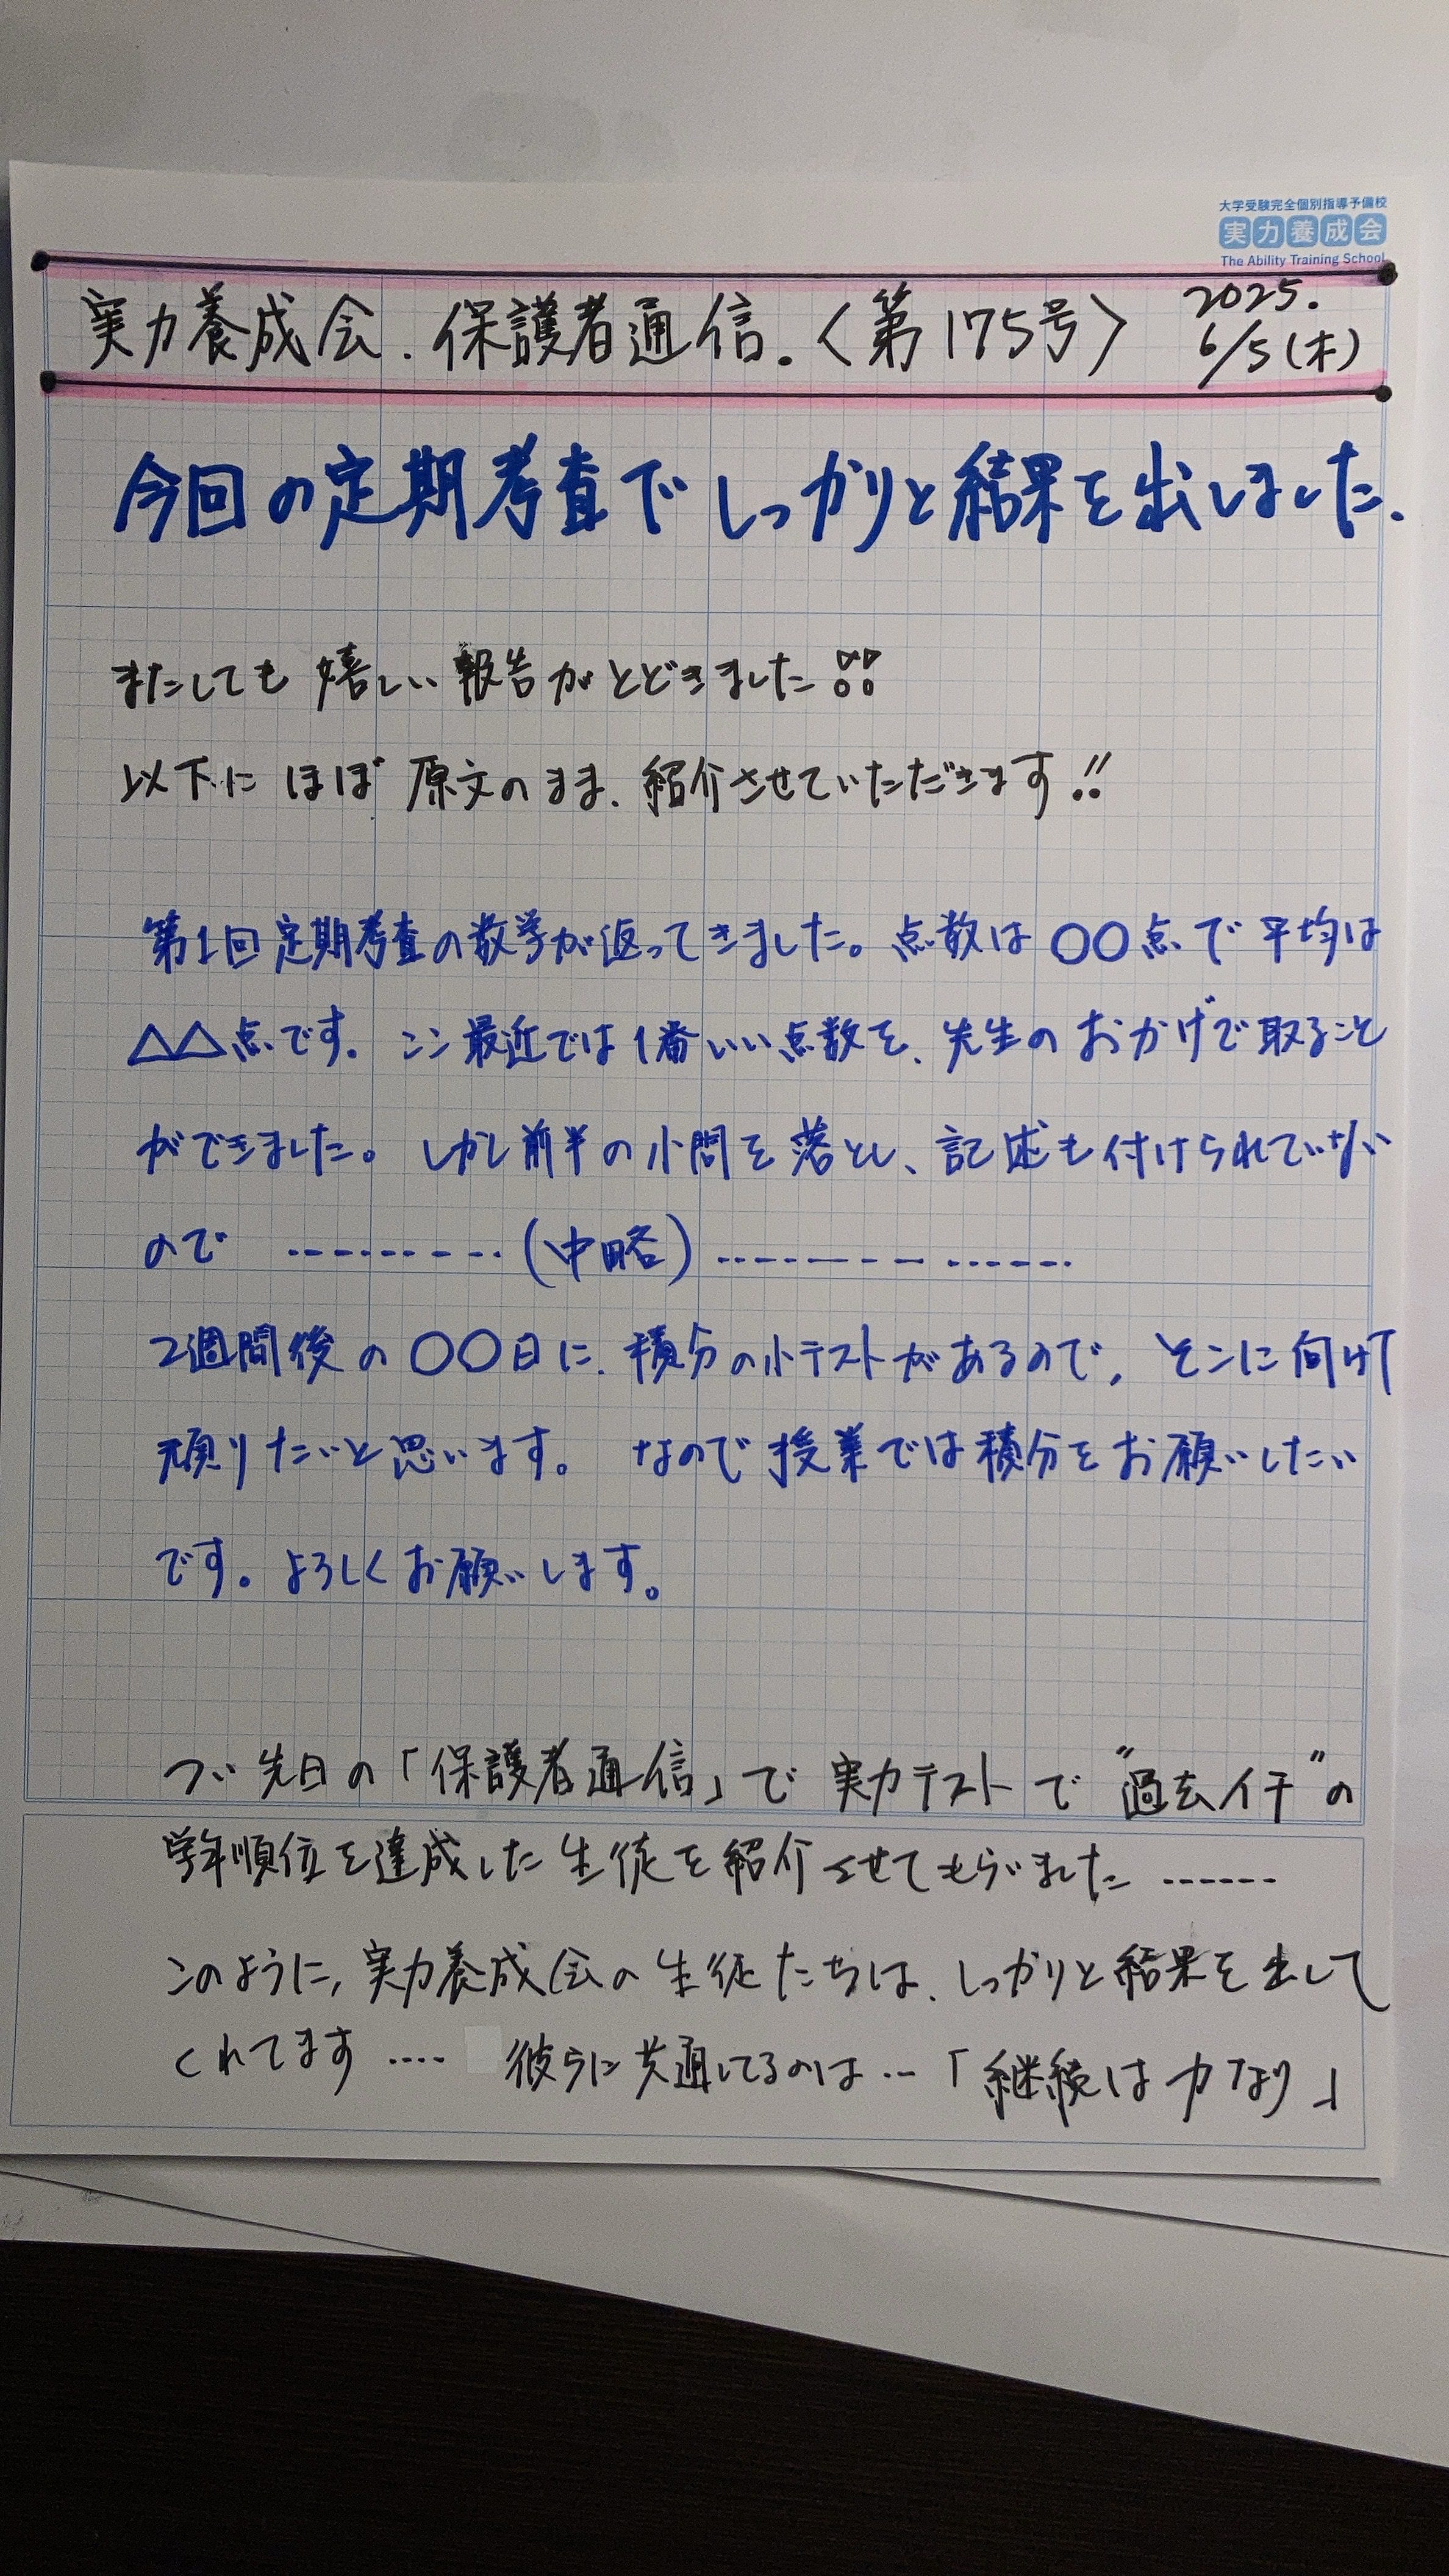 大学受験完全個別指導予備校
実力養成会
The Ability Training School
実力養成会.保護者通信.〈第175号〉 2025.
6/5(木)
今回の定期考査でしっかりと結果を出しました.
またしても嬉しい報告がとどきました!!
以下にほぼ原文のまま、紹介させていただきます!!
第1回定期考査の数学が返ってきました。点数は〇〇点で平均は
△△点です。ここ最近では1番いい点数を、先生のおかげで取ること
ができました。しかし前半の小問を落とし、記述も付けられていない
ので ………(中略)…………
2週間後の〇〇日に、積分の小テストがあるので、そこに向けて
頑りたいと思います。なので授業では積分をお願いしたい
です。よろしくお願いします。
つい先日の「保護者通信」で実力テストで"過去イチ"の
学年順位を達成した生徒を紹介させてもらいました……
このように,実力養成会の生徒たちは、しっかりと結果を出して
くれてます…. 彼らに共通してるのは…「継続は力なり」